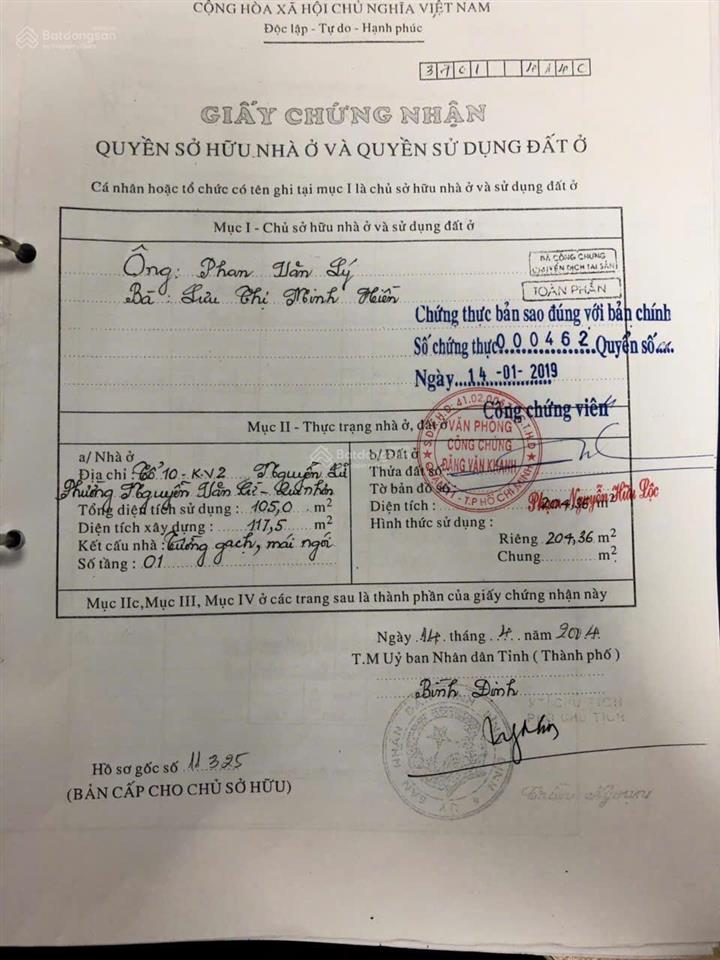 Batdongsan
by PropertyGuru
CỘNG HÒA XÃ HỘI CHỦ NGHĨA VIỆT NAM
Độc lập - Tự do - Hạnh phúc
GIẤY CHỨNG NHẬN
QUYỀN SỞ HỮU NHÀ Ở VÀ QUYỀN SỬ DỤNG ĐẤT Ở
Cá nhân hoặc tổ chức có tên ghi tại mục I là chủ sở hữu nhà ở và sử dụng đất ở
Mục I - Chủ sở hữu nhà ở và sử dụng đất ở
Ông: Phan Văn Lý
Bà: Lưu Thị Minh Hiền
ĐÃ CÔNG CHỨNG
CHUYỂN DỊCH TÀI SẢN
TOÀN PHẦN
Chứng thực bản sao đúng với bản chính
Số chứng thực 000462 Quyển số
Ngày 14 -01- 2019
Công chứng viên
VĂN PHÒNG
CÔNG CHỨNG
ĐẶNG VĂN KHANH
QUẬN 1 - T.P HỒ CHÍ MINH
Phạm Nguyễn Hữu Lộc
Mục II - Thực trạng nhà ở, đất ở
a/ Nhà ở
Địa chỉ: Tổ 10 - KV2 Nguyễn Lữ
Phường Nguyễn Văn Cừ - Quinhơn
Tổng diện tích sử dụng : 105,0 m2
Diện tích xây dựng : 117,5 m2
Kết cấu nhà : Tường gạch, mái ngói
Số tầng : 01
b/ Đất ở
Thửa đất số
Tờ bản đồ số
Diện tích : 204,36 m2
Hình thức sử dụng :
Riêng 204,36 m2
Chung m2
Mục IIc, Mục III, Mục IV ở các trang sau là thành phần của giấy chứng nhận này
Ngày 14 tháng 4 năm 2004
T.M Uỷ ban Nhân dân Tỉnh ( Thành phố )
Bình Định
KT CHỦ TỊCH
PHÓ CHỦ TỊCH
Hồ sơ gốc số 11325
(BẢN CẤP CHO CHỦ SỞ HỮU)